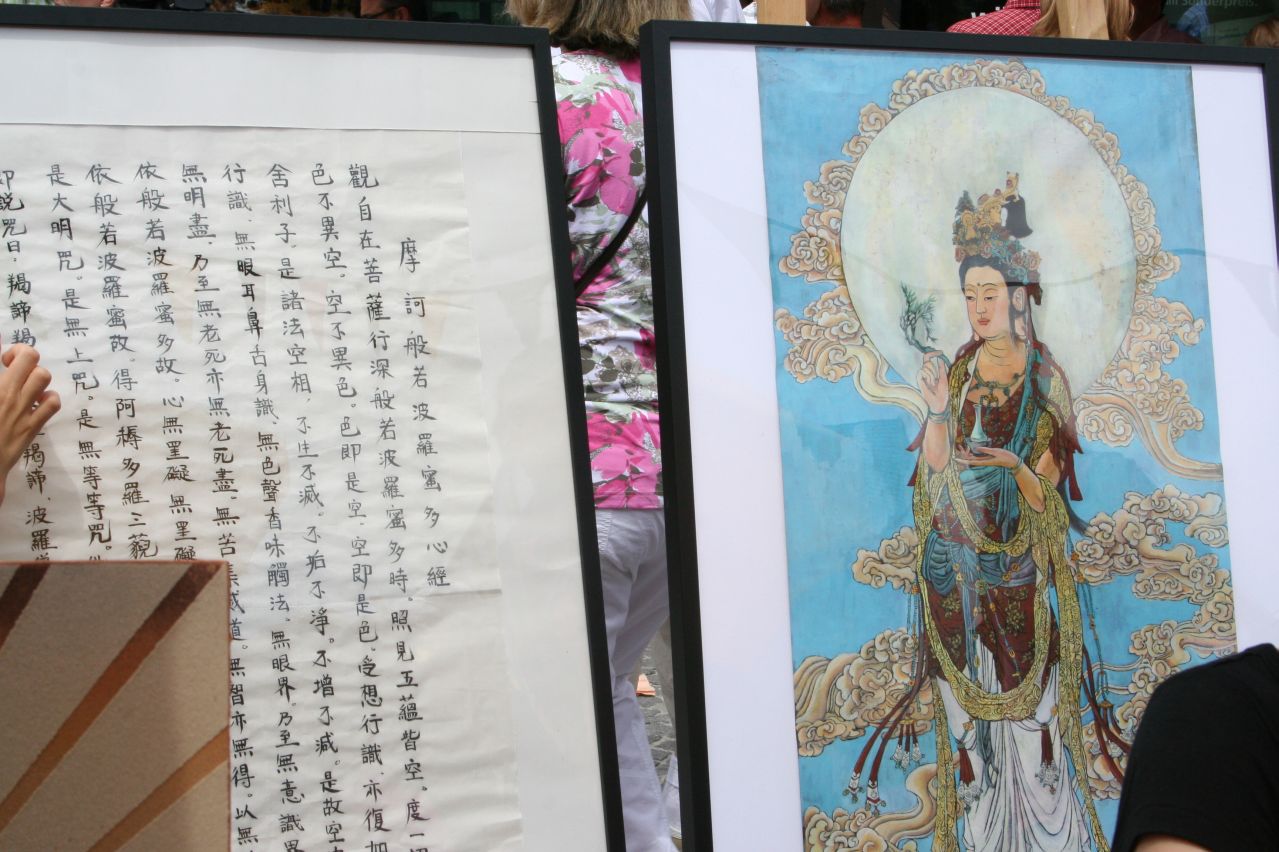 Sonderpreis.
摩訶般若波羅蜜多心經
觀自在菩薩行深般若波羅蜜多時。照見五蘊皆空。度一
色不異空。空不異色。色即是空、空即是色。受想行識、亦復如
舍利子、是諸法空相，不生不滅。不垢不淨。不增不減。是故空
行識、無眼耳鼻舌身識、無色聲香味觸法、無眼界。乃至無意識界
無明盡、乃至無老死亦無老死盡、無苦集滅道。無智亦無得。以無
依般若波羅蜜多故。心無罣礙無罣礙
依般若波羅蜜多故、得阿耨多羅三藐
是大明咒。是無上咒。是無等等咒。
即説咒曰，羯諦羯 羯諦、波羅